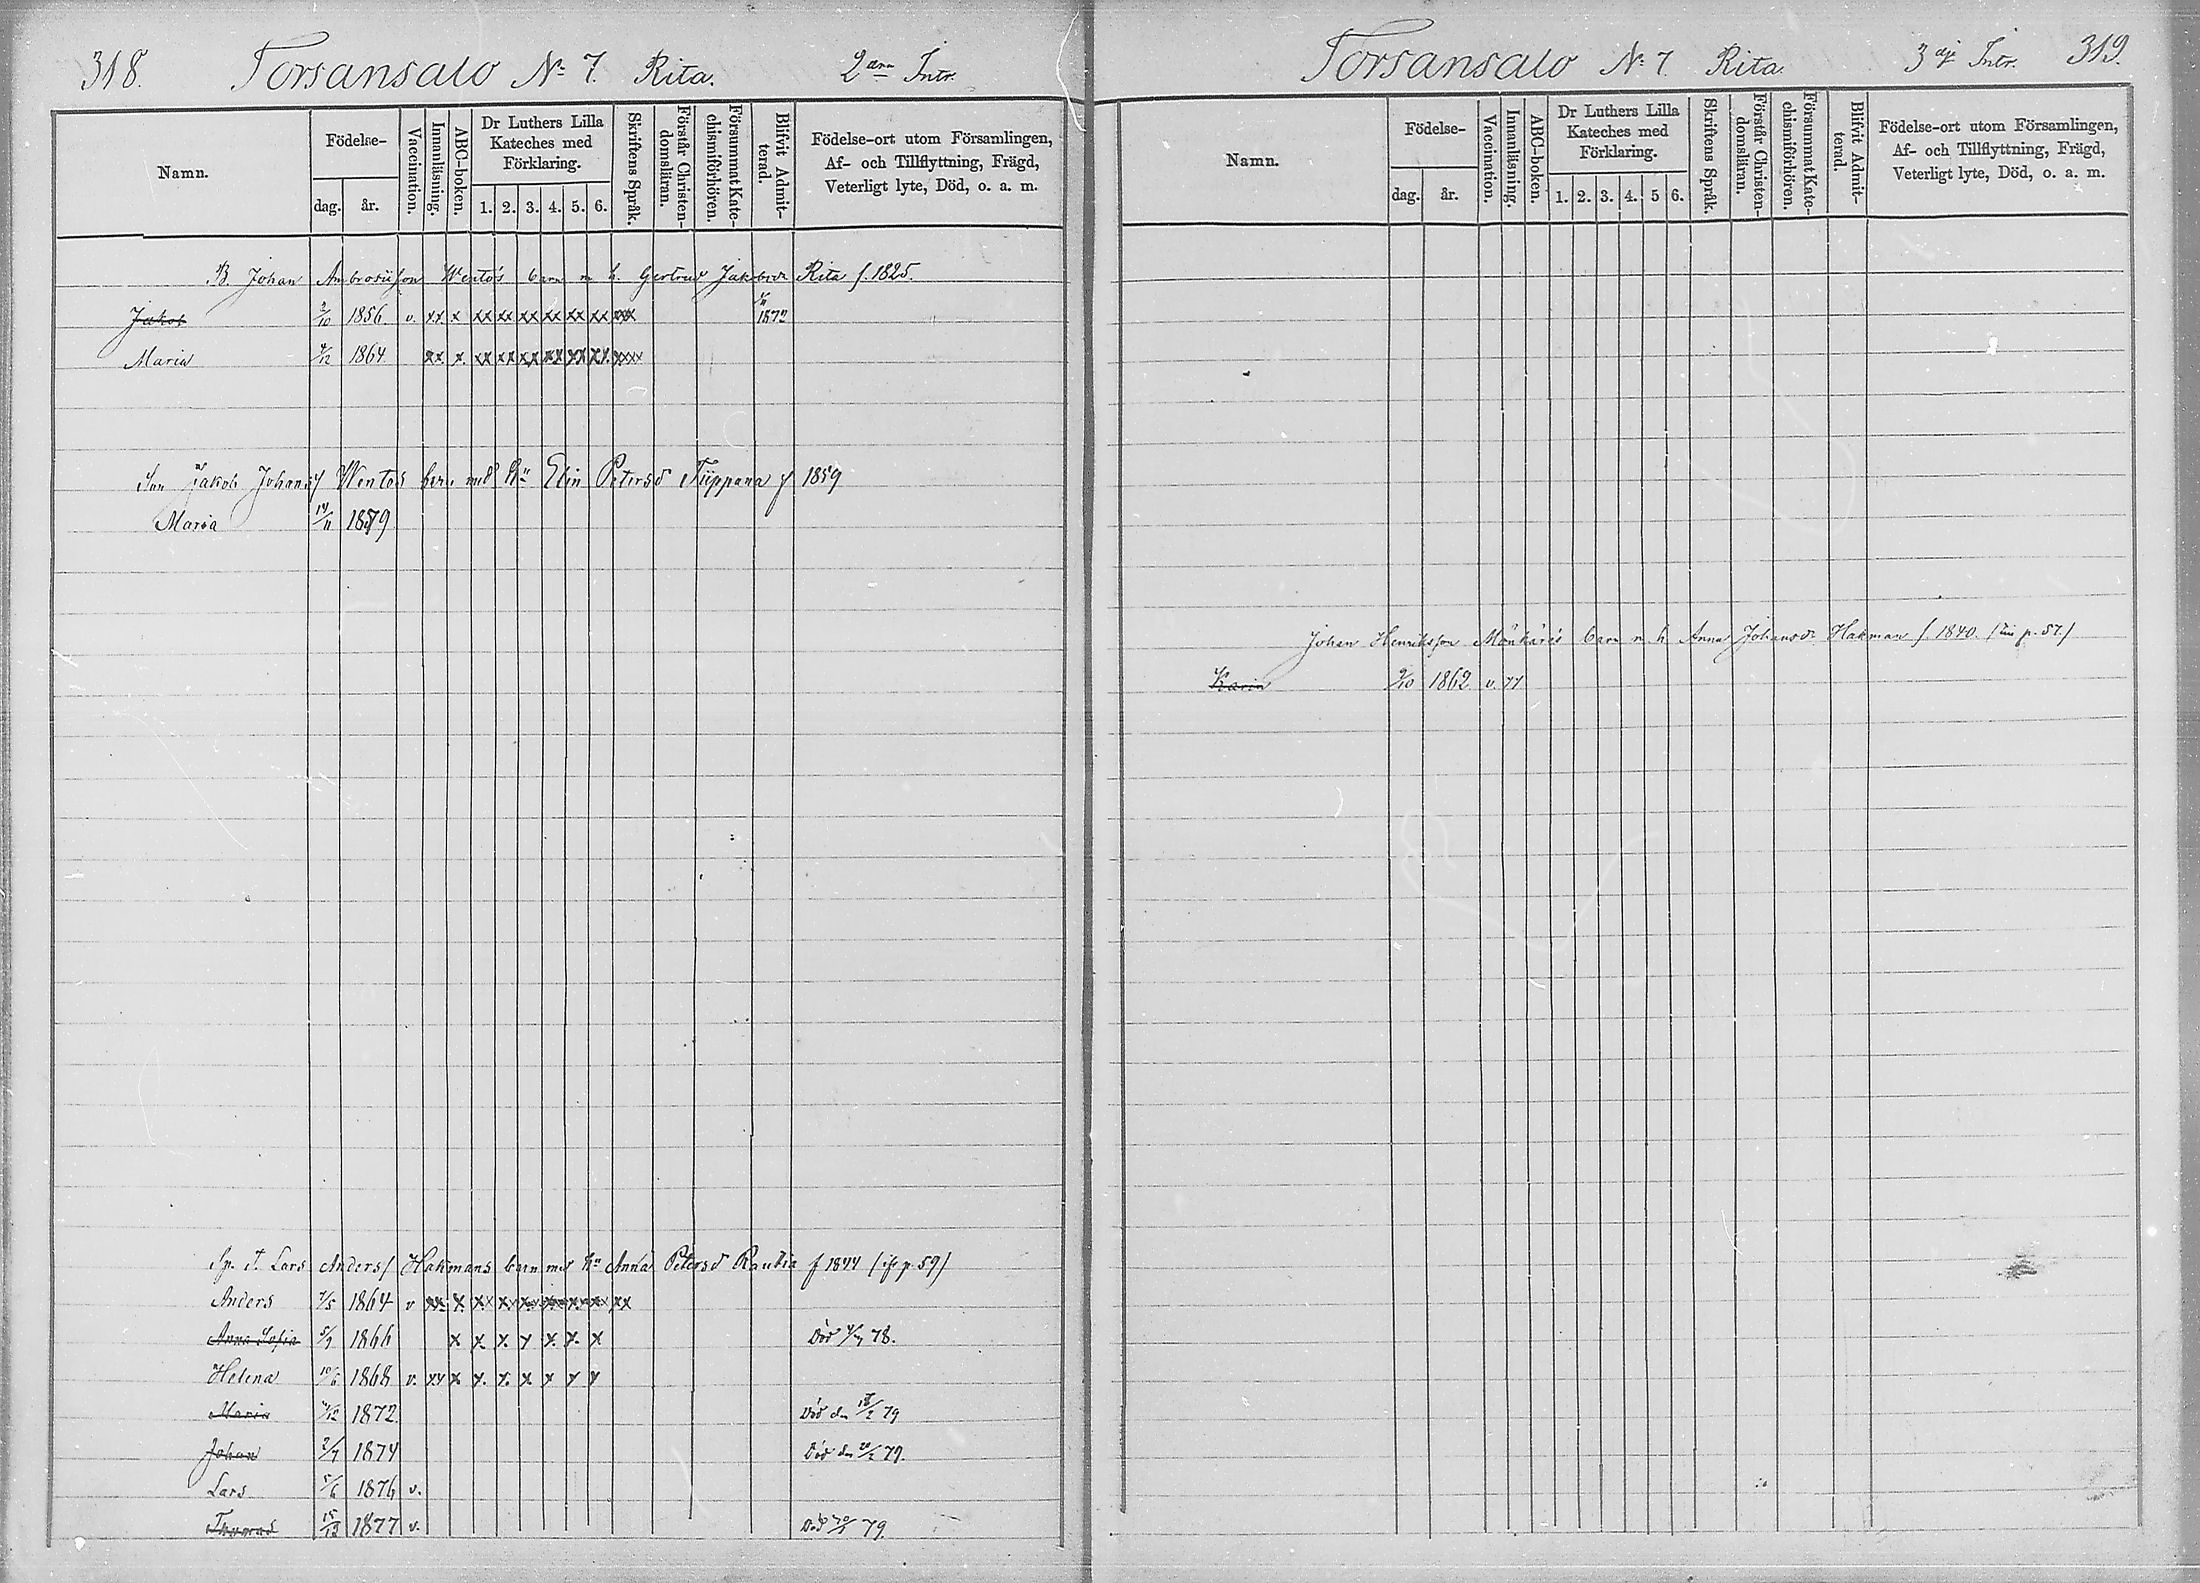 318. Torsansalo No 7. Rita. 2dra Intr.
Namn.
Födelse-
dag.
år.
Vaccination.
Innanläsning.
ABC-boken.
Dr Luthers Lilla
Kateches med
Förklaring.
1. 2. 3. 4. 5. 6.
Skriftens Språk.
Förstår Christen-
domsläran.
Försummat Kate-
chismiförhören.
Blifvit Admit-
terad.
Födelse-ort utom Församlingen,
Af- och Tillflyttning, Frägd,
Veterligt lyte, Död, o. a. m.
B. Johan Ambrosiisson Wento's barn m h. Gertrud Jakobsdr Rita f. 1825.
Jakob 2/10 1856. v. xx x xx xx xx xx xx xx xxx 1872
Maria 4/12 1864 xx x. xx xx xx xx xx xx. xxxx
Son Jakob Johans/ Wentos barn med hu Elin Petersd Tiippana f 1859
Maria 14/11 1879
Sp. T. Lars Anders/ Hakmans barn med hu Anna Petersd Rautia f 1844 (ifr p 59)
Anders 7/5 1864 v xx x. xx x. x. x. x. x xx
Anna Sofia 5/7 1866 x x. x. x x. x. x Död 78.
Helena 10/6 1868 v. xx x x. x. x x x x
Maria 4/12 1872. Död den 18/2 79
Johan 2/7 1874 Död den 20/2 79.
Lars 5/6 1876 v.
Thomas 15/12 1877 v. Död 79.
Torsansalo No 7. Rita. 3dje Intr. 319.
Namn.
Födelse-
dag.
år.
Vaccination.
Innanläsning.
ABC-boken.
Dr Luthers Lilla
Kateches med
Förklaring.
1. 2. 3. 4. 5 6.
Skriftens Språk.
Förstår Christen-
domsläran.
Försummat Kate-
chismiförhören.
Blifvit Admit-
terad.
Födelse-ort utom Församlingen,
Af- och Tillflyttning, Frägd,
Veterligt lyte, Död, o. a. m.
Johan Henriksson Mönkäre's barn m h. Anna Johansdr. Hakman f 1840. p. 57.)
Karin 9/10 1862 v. xx